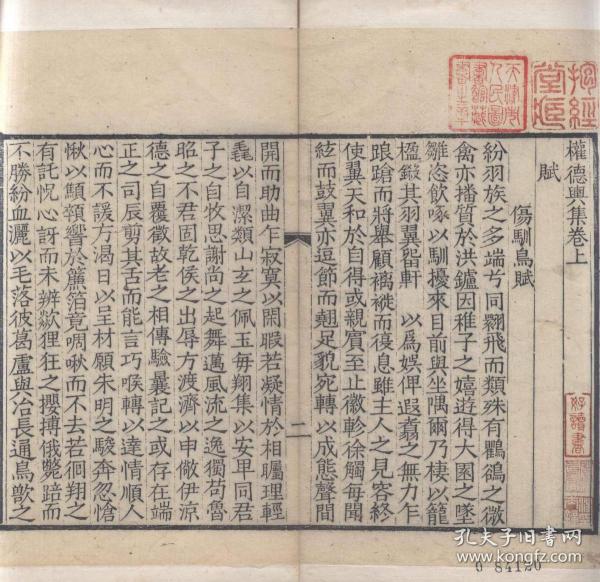 權德輿集卷上
賦
傷馴鳥賦
紛羽族之多端兮同翾飛而類殊有鸜鵒之微
禽亦播質於洪鑪因稚子之嬉遊得大園之墜
雛恣飲啄以馴擾來目前與坐隅爾乃棲以籠
楹鎩其羽翼 軒 以爲娛俾遐翥之無力乍
踉蹌而將舉顧褵褷而復息雖主人之見容終
使翼天和於自得或親賓至止徽軫徐觸每聞
絃而鼓翼亦逗節而翹足貌宛轉以成態聲間
關而助曲乍寂寞以閑暇若凝情於相矚理輕
毳以自潔類山玄之佩玉每翔集以安卑同君
子之自牧思謝尚之起舞邁風流之逸獨苟魯
昭之不君固乾侯之出辱方渡濟以申儆伊涼
德之自覆徵故老之相傳驗曩記之或存在端
正之司辰剪其舌而能言巧喉轉以達情順人
心而不諼方渴日以呈材願朱明之駿奔忽愴
愀以顦顇響於簾箔竟啁啾而不去若徊翔之
有託怳心訝而未辨歘狸狂之攖搏俄斃踣而
不勝紛血灑以毛落彼葛盧與冶長通鳥獸之
二
天津市人民圖書館藏書之章
抱經堂
好讀書
0 84120
孔夫子旧书网
www.kongfz.com